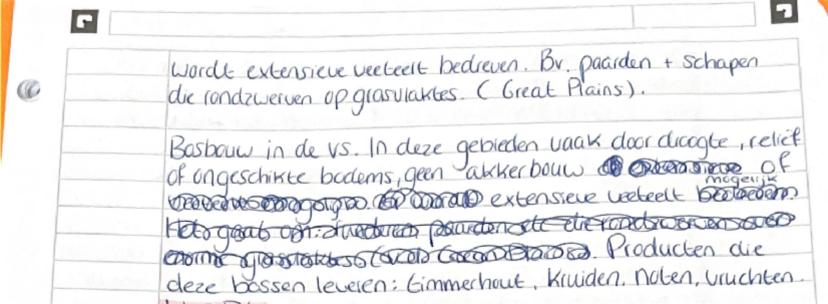 wordt extensieve veeteelt bedreven. Bv. paarden + schapen
die rondzwerven op grasvlaktes. (Great Plains).
Bosbouw in de VS. In deze gebieden vaak door droogte, reliëf
of ongeschikte bodems, geen akkerbouw of
mogelijk
extensieve veeteelt
Producten die
deze bossen leveren: timmerhout, kruiden, noten, vruchten.